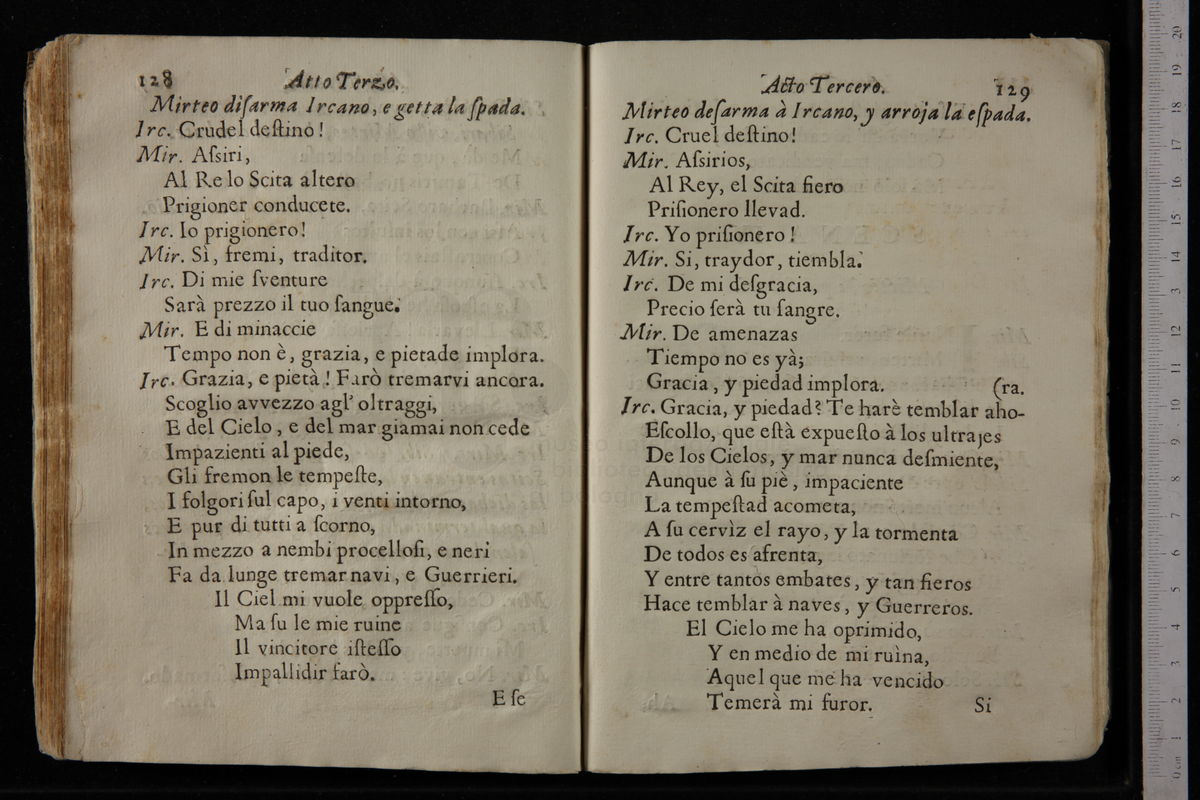 128 Atto Terzo.
Mirteo diſarma Ircano, e getta la ſpada.
Irc. Crudel deſtino!
Mir. Aſsiri,
Al Re lo Scita altero
Prigioner conducete.
Irc. Io prigionero!
Mir. Sì, fremi, traditor.
Irc. Di mie ſventure
Sarà prezzo il tuo ſangue.
Mir. E di minaccie
Tempo non è, grazia, e pietade implora.
Irc. Grazia, e pietà! Farò tremarvi ancora.
Scoglio avvezzo agl' oltraggi,
E del Cielo, e del mar giamai non cede
Impazienti al piede,
Gli fremon le tempeſte,
I folgori ſul capo, i venti intorno,
E pur di tutti a ſcorno,
In mezzo a nembi proceloſi, e neri
Fa da lunge tremar navi, e Guerrieri.
Il Ciel mi vuole oppreſſo,
Ma ſu le mie ruine
Il vincitore iſteſſo
Impallidir farò.
E ſe
Acto Tercero. 129
Mirteo deſarma à Ircano, y arroja la eſpada.
Irc. Cruel deſtino!
Mir. Aſsirios,
Al Rey, el Scita fiero
Priſionero llevad.
Irc. Yo priſionero!
Mir. Si, traydor, tiembla.
Irc. De mi deſgracia,
Precio ſerà tu ſangre.
Mir. De amenazas
Tiempo no es yà;
Gracia, y piedad implora. (ra.
Irc. Gracia, y piedad? Te harè temblar aho-
Eſcollo, que eſtà expueſto à los ultrajes
De los Cielos, y mar nunca deſmiente,
Aunque à ſu piè, impaciente
La tempeſtad acometa,
A ſu cervìz el rayo, y la tormenta
De todos es afrenta,
Y entre tantos embates, y tan fieros
Hace temblar à naves, y Guerreros.
El Cielo me ha oprimido,
Y en medio de mi ruìna,
Aquel que me ha vencido
Temerà mi furor.
Si